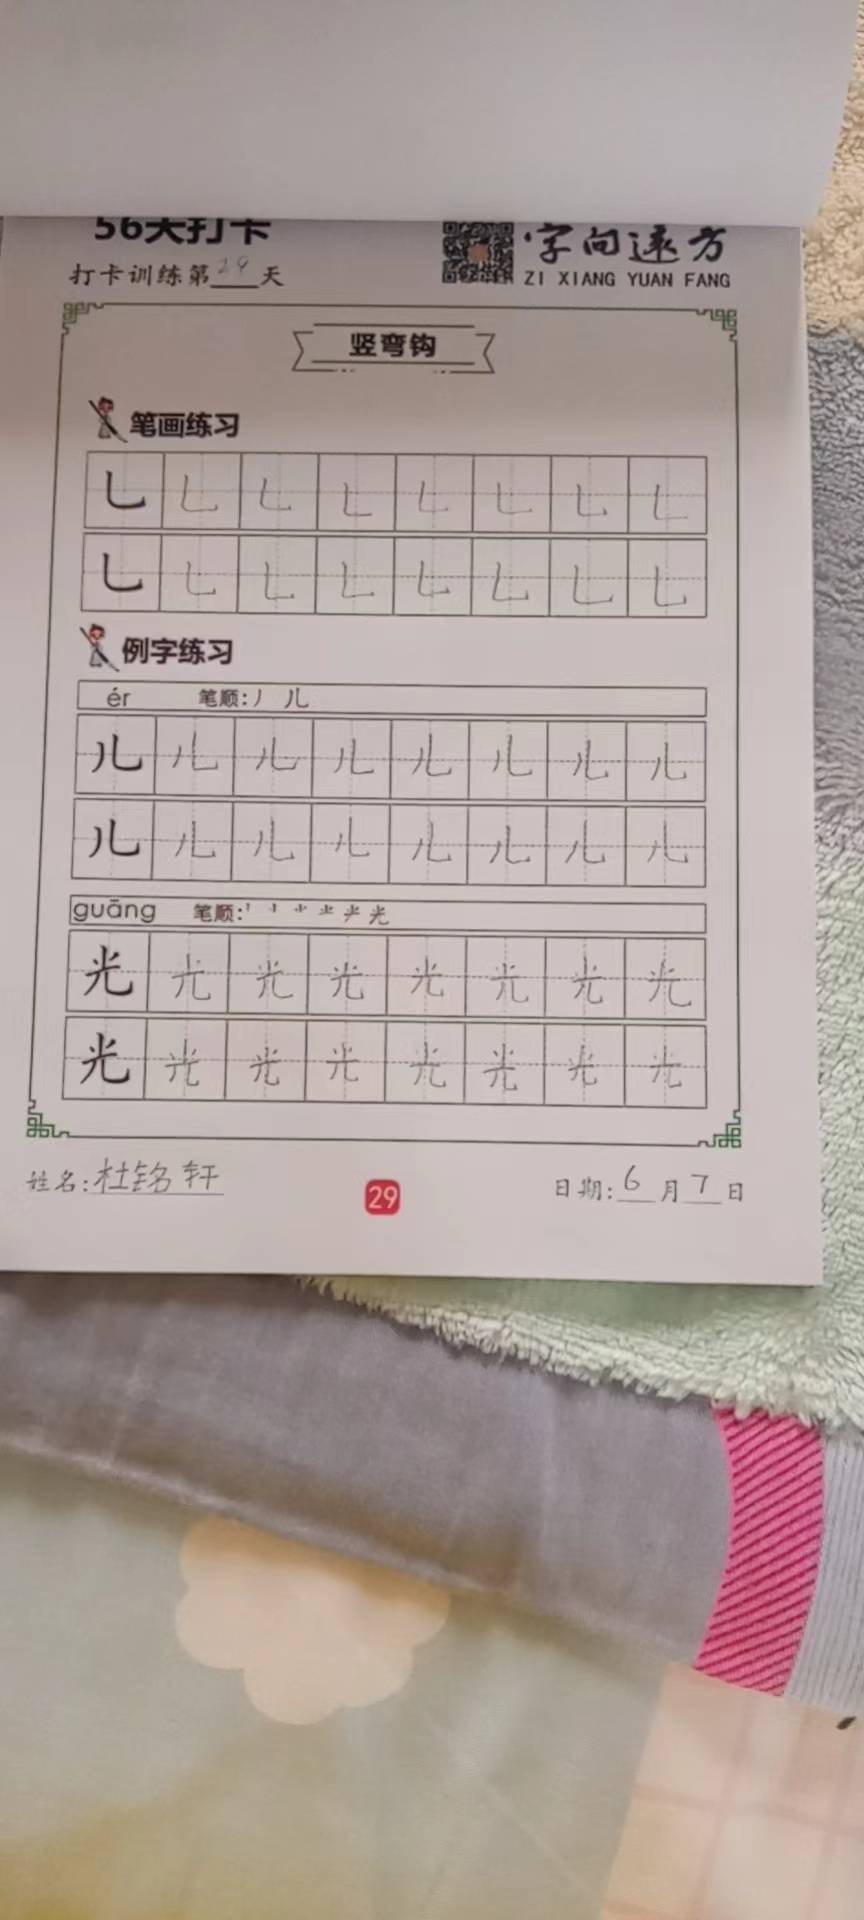 56天打卡
字向远方
打卡训练第29天
ZI XIANG YUAN FANG
竖弯钩
笔画练习
乚 乚 乚 乚 乚 乚 乚 乚
乚 乚 乚 乚 乚 乚 乚 乚
例字练习
ér 笔顺:丿 儿
儿 儿 儿 儿 儿 儿 儿 儿
儿 儿 儿 儿 儿 儿 儿 儿
guāng 笔顺:
光 光 光 光 光 光 光 光
光 光 光 光 光 光 光 光
姓名:杜铭轩
29
日期:6月7日